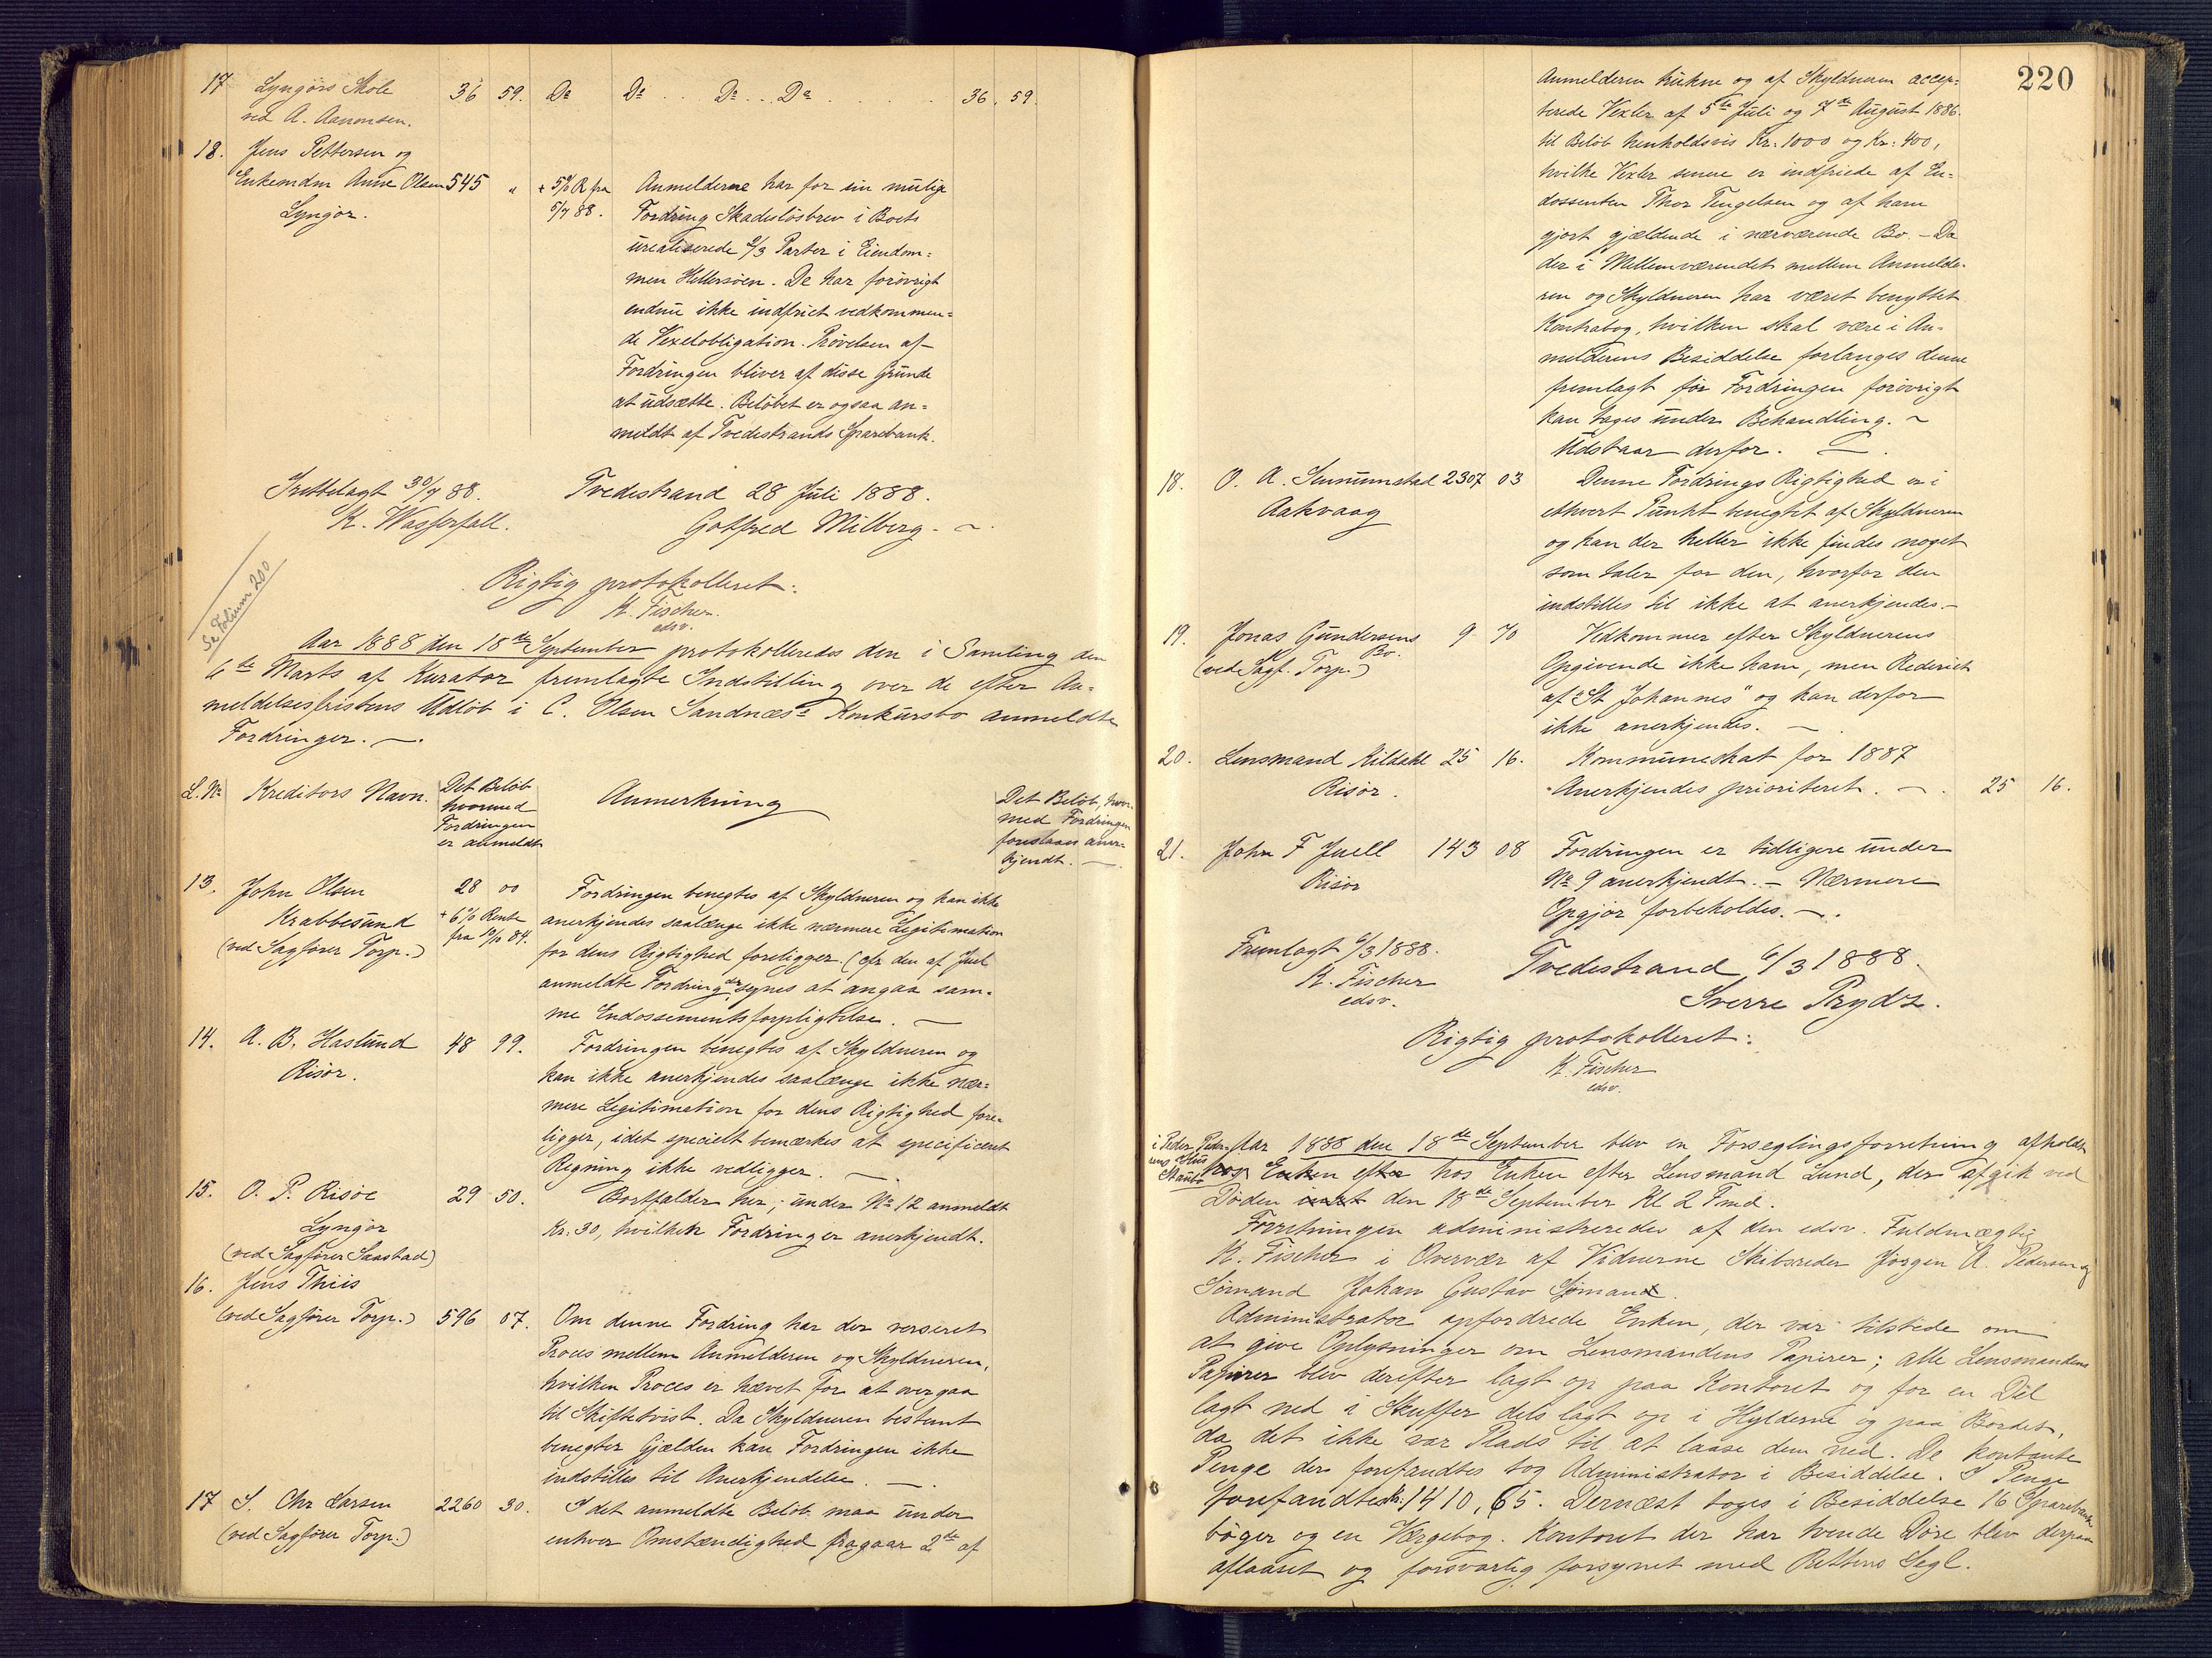 17 Lyngørs Skole 36 59. Do Do . . Do . . Do . . . . . 36. 59.
ved A. Aanonsen.
18. Jens Pettersen og
Enkemdm Anne Olsen 545 " + 5% R fra Anmelderne har for sin mulige
Lyngør. 5/7 88. Fordring Skadesløsbrev i Boets
urealiserede 2/3 Parter i Eiendom=
men Hellersøen. De har forøvrigt
endnu ikke indfriet vedkommen=
de Vexelobligation. Prøvelsen af
Fordringen bliver af disse Grunde
at udsætte. Beløbet er ogsaa an=
meldt af Tvedestrands Sparebank.
Irettelagt 30/7 88. Tvedestrand 28 Juli 1888.
K. Wasserfall. Gotfred Milberg. ~
Rigtig protokolleret:
K. Fischer.
edsv.
Se Folium 200
Aar 1888 den 18de September protokolleredes den i Samling den
6te Marts af Kurator fremlagte Indstilling over de efter An=
meldelsesfristens Udløb i C. Olsen Sandnæs's Konkursbo anmeldte
Fordringer. —.
L. No Kreditors Navn. Det Beløb hvormed Fordringen er anmeldt Anmerkning Det Beløb, hvor- med Fordringen foreslaaes aner- kjendt. —
13. John Olsen 28 00 Fordringen benegtes af Skyldneren og kan ikke
Krabbesund + 6% Rente anerkjendes saalænge ikke nærmere Legitimation
(ved Sagfører Torp.) fra 10/10 84. for dens Rigtighed foreligger. (cfr den af Juel
anmeldte Fordring der synes at angaa sam=
me Endossementsforpligtelse. —
14. A. B. Haslund 48 99. Fordringen benegtes af Skyldneren og
Risør. kan ikke anerkjendes saalænge ikke nær=
mere Legitimation for dens Rigtighed fore=
ligger, idet specielt bemærkes at specificeret
Regning ikke vedligger. —
15. O. P. Risøe 29 50. Bortfalder her; under No 12 anmeldt
Lyngør Kr. 30, hvilken Fordring er anerkjendt.
(ved Sagfører Saastad)
16. Jens Thiis
(ved Sagfører Torp.) 596 07. Om denne Fordring har der verseret
Proces mellem Anmelderen og Skyldneren,
hvilken Proces er hævet for at overgaa
til Skiftetvist. Da Skyldneren bestemt
benegter Gjælden kan Fordringen ikke
indstilles til Anerkjendelse. —.
17 S. Chr Larsen 2260 30. I det anmeldte Beløb maa under
(ved Sagfører Torp.) enhver Omstændighed fragaar 2de af
220
Anmelderen trukne og af Skyldneren accep=
terede Vexler af 5te Juli og 7de August 1886.
til Beløb henholdsvis Kr. 1000 og Kr. 400,
hvilke Vexler senere er indfriede af En-
dossenten Thor Tengelsen og af ham
gjort gjældende i nærværende Bo. — Da
der i Mellemværendet mellem Anmelde-
ren og Skyldneren har været benyttet
Kontrabog, hvilken skal være i An-
melderens Besiddelse forlanges denne
fremlagt før Fordringen forøvrigt
kan tages under Behandling. ~
Udstaar derfor. —.
18. O. A. Sunnumstad 2307 03 Denne Fordrings Rigtighed er i
Aakvaag ethvert Punkt benegtet af Skyldneren
og kan der heller ikke findes noget
som taler for den, hvorfor den
indstilles til ikke at anerkjendes. —
19. Jonas Gundersens Bo. 9 70 Vedkommer efter Skyldnerens
(ved Sagf. Torp.) Opgivende ikke ham, men Rederiet
af "St Johannes" og kan derfor
ikke anerkjendes. —.
20. Lensmand Kildahl 25 16. Kommuneskat for 1887
Risør. Anerkjendes prioriteret. —. 25 16.
21. John F Juell 143 08 Fordringen er tidligere under
Risør No 9 anerkjendt. — Nærmere
Opgjør forbeholdes. —.
Fremlagt 6/3 1888. Tvedestrand 6/3 1888.
K. Fischer Sverre Prydz.
edsv.
Rigtig protokolleret:
K. Fischer
edsv.
i Peder Peder-
sens Hus
Aar 1888 den 18de September blev en Forseglingsforretning afholdt
hos Enken efter hos Enken efter Lensmand Lund, der afgik ved
Døden den 18de September Kl 2 Fmd.
Forretningen administreredes af den edsv. Fuldmægtig
K. Fischer i Overvær af Vidnerne Skibsreder Jørgen A. Pedersen og
Sømand Johan Gustav Sømand.
Administrator opfordrede Enken, der var tilstede om
at give Oplysninger om Lensmandens Papirer; alle Lensmandens
Papirer blev derefter lagt op paa Kontoret og for en Del
lagt ned i Skuffer dels lagt op i Hylderne og paa Bordet,
da det ikke var Plads til at laase dem ned. De kontante
Penge der forefandtes tog Administrator i Besiddelse. I Penge
forefandtes kr. 1410,65. Dernæst toges i Besiddelse 16 Sparebank
bøger og en Værgebog. Kontoret der har tvende Døre blev derpaa
aflaaset og forsvarlig forsynet med Rettens Segl.